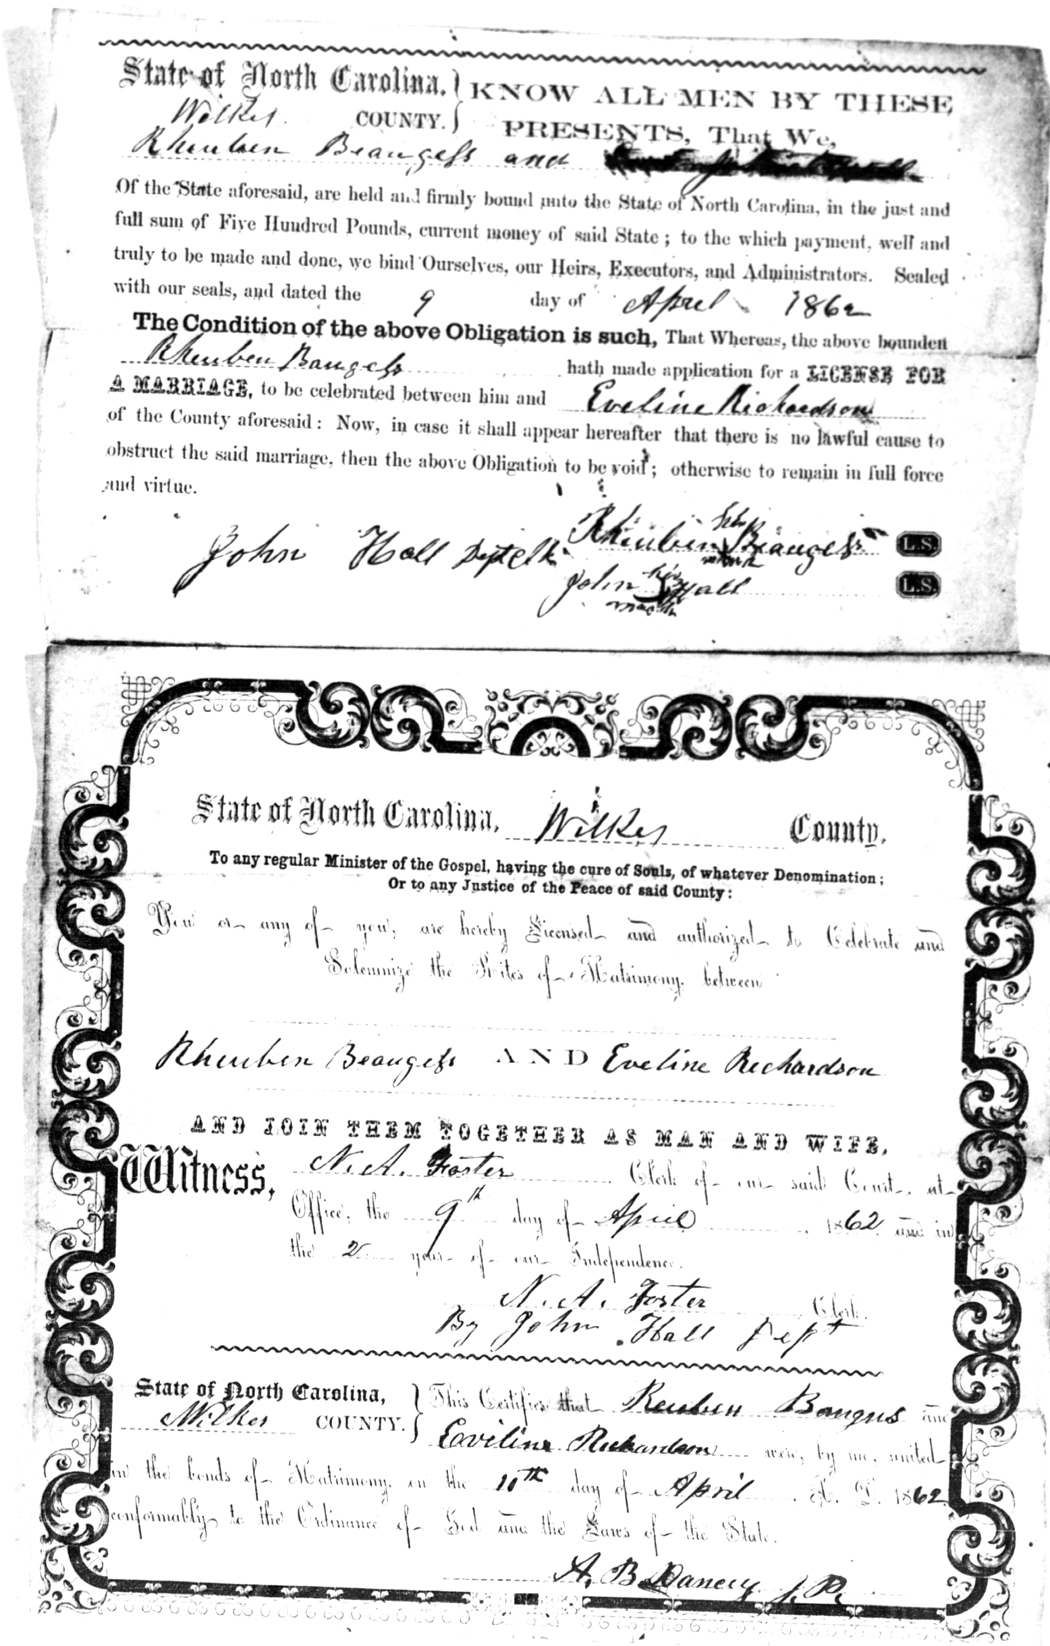 State of North Carolina, } KNOW ALL MEN BY THESE
Wilkes COUNTY. } PRESENTS, That We,
Rheuben Beaugess and
Of the State aforesaid, are held and firmly bound unto the State of North Carolina, in the just and
full sum of Five Hundred Pounds, current money of said State; to the which payment, well and
truly to be made and done, we bind Ourselves, our Heirs, Executors, and Administrators. Sealed
with our seals, and dated the 9 day of April 1862
The Condition of the above Obligation is such, That Whereas, the above bounden
Rheuben Baugess hath made application for a LICENSE FOR
A MARRIAGE, to be celebrated between him and Eveline Richardson
of the County aforesaid: Now, in case it shall appear hereafter that there is no lawful cause to
obstruct the said marriage, then the above Obligation to be void; otherwise to remain in full force
and virtue.
his
John Hall Dept Clk Rheuben Beaugess L.S.
mark
his
John Hall L.S.
mark
State of North Carolina, Wilkes County.
To any regular Minister of the Gospel, having the cure of Souls, of whatever Denomination;
Or to any Justice of the Peace of said County:
You or any of you, are hereby Licensed and authorized to Celebrate and
Solemnize the Rites of Matrimony, between
Rheuben Beaugess AND Eveline Richardson
AND JOIN THEM TOGETHER AS MAN AND WIFE,
Witness, N. A. Foster Clerk of our said Court, at
Office, the 9th day of April 1862 and in
the 2 year of our Independence.
N. A. Foster Clerk.
By John Hall Dept
State of North Carolina, } This Certifies that Reuben Bangus and
Wilkes COUNTY. } Eviline Richardson were, by me, united
in the bonds of Matrimony, on the 10th day of April A. D. 1862
conformably to the Ordinance of God and the Laws of the State.
A. B. Dancey J. P.